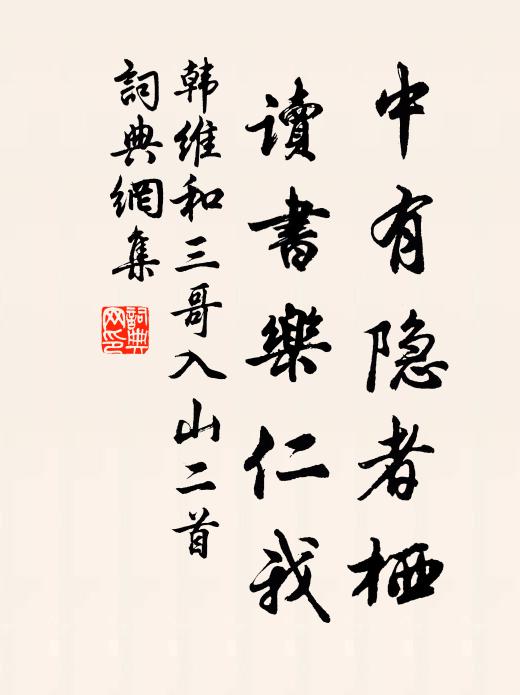 中有隐者栖
读書樂仁我
韩维和三哥入山二首
詞典網集
詞典网印